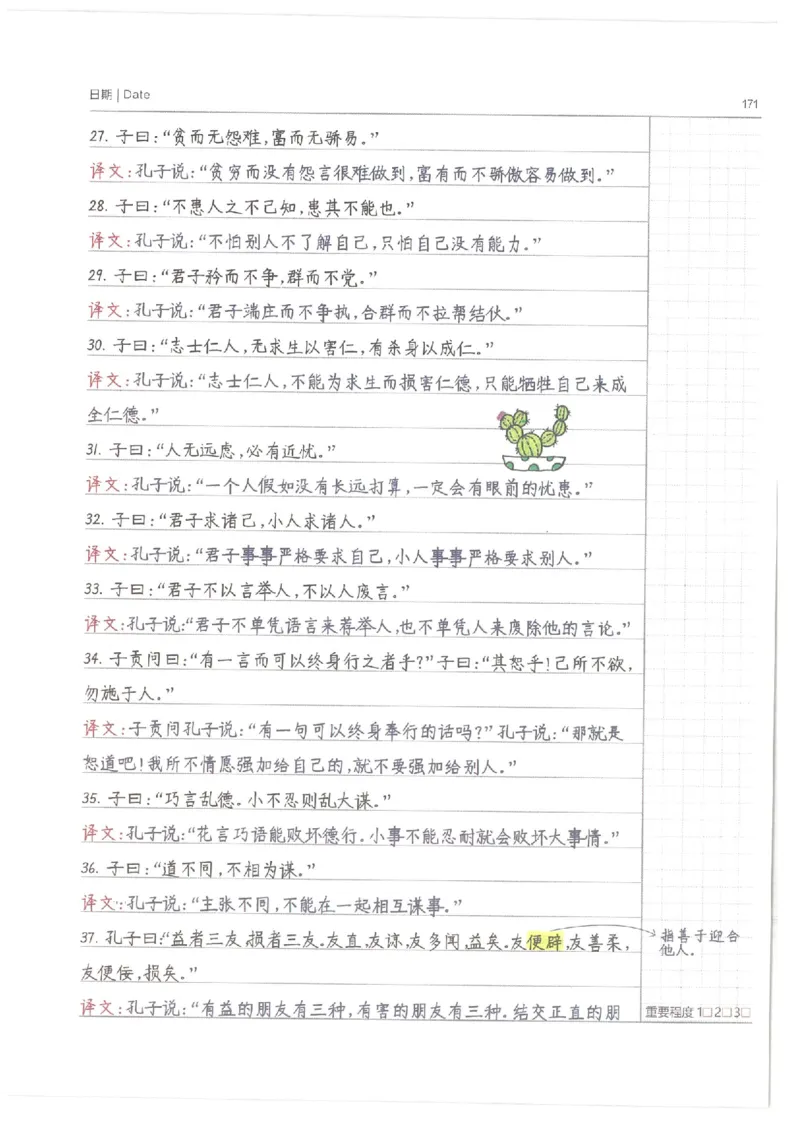 日期 | Date
171
27. 子曰：“贫而无怨难，富而无骄易。”
译文：孔子说：“贫穷而没有怨言很难做到，富有而不骄傲容易做到。”
28. 子曰：“不患人之不己知，患其不能也。”
译文：孔子说：“不怕别人不了解自己，只怕自己没有能力。”
29. 子曰：“君子矜而不争，群而不党。”
译文：孔子说：“君子端庄而不争执，合群而不拉帮结伙。”
30. 子曰：“志士仁人，无求生以害仁，有杀身以成仁。”
译文：孔子说：“志士仁人，不能为求生而损害仁德，只能牺牲自己来成
全仁德。”
31. 子曰：“人无远虑，必有近忧。”
译文：孔子说：“一个人假如没有长远打算，一定会有眼前的忧患。”
32. 子曰：“君子求诸己，小人求诸人。”
译文：孔子说：“君子事事严格要求自己，小人事事严格要求别人。”
33. 子曰：“君子不以言举人，不以人废言。”
译文：孔子说：“君子不单凭语言来荐举人，也不单凭人来废除他的言论。”
34. 子贡问曰：“有一言而可以终身行之者乎？”子曰：“其恕乎！己所不欲，
勿施于人。”
译文：子贡问孔子说：“有一句可以终身奉行的话吗？”孔子说：“那就是
恕道吧！我所不情愿强加给自己的，就不要强加给别人。”
35. 子曰：“巧言乱德。小不忍则乱大谋。”
译文：孔子说：“花言巧语能败坏德行。小事不能忍耐就会败坏大事情。”
36. 子曰：“道不同，不相为谋。”
译文：孔子说：“主张不同，不能在一起相互谋事。”
37. 孔子曰：“益者三友，损者三友。友直，友谅，友多闻，益矣。友便辟，友善柔，
指善于迎合
他人。
友便佞，损矣。”
译文：孔子说：“有益的朋友有三种，有害的朋友有三种。结交正直的朋
重要程度 1□2□3□